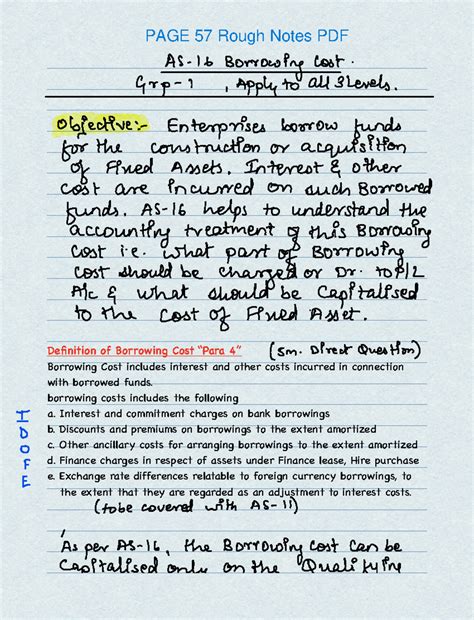 PAGE 57 Rough Notes PDF
AS-16 Borrowing Cost.
Grp-1 , Apply to All 3 Levels.
Objective:- Enterprises borrow funds
for the construction or acquisition
of Fixed Assets. Interest & other
cost are incurred on such Borrowed
funds. AS-16 helps to understand the
accounting treatment of this Borrowing
Cost i.e. what part of Borrowing
cost should be charged or Dr. to P/L
A/c & what should be Capitalised
to the Cost of Fixed Asset.
Definition of Borrowing Cost "Para 4" (5m. Direct Question)
Borrowing Cost includes interest and other costs incurred in connection
with borrowed funds.
borrowing costs includes the following
I a. Interest and commitment charges on bank borrowings
D b. Discounts and premiums on borrowings to the extent amortized
O c. Other ancillary costs for arranging borrowings to the extent amortized
F d. Finance charges in respect of assets under Finance lease, Hire purchase
E e. Exchange rate differences relatable to foreign currency borrowings, to
the extent that they are regarded as an adjustment to interest costs.
(to be covered with AS-11)
As per AS-16, the Borrowing Cost can be
Capitalised only on the Qualifying